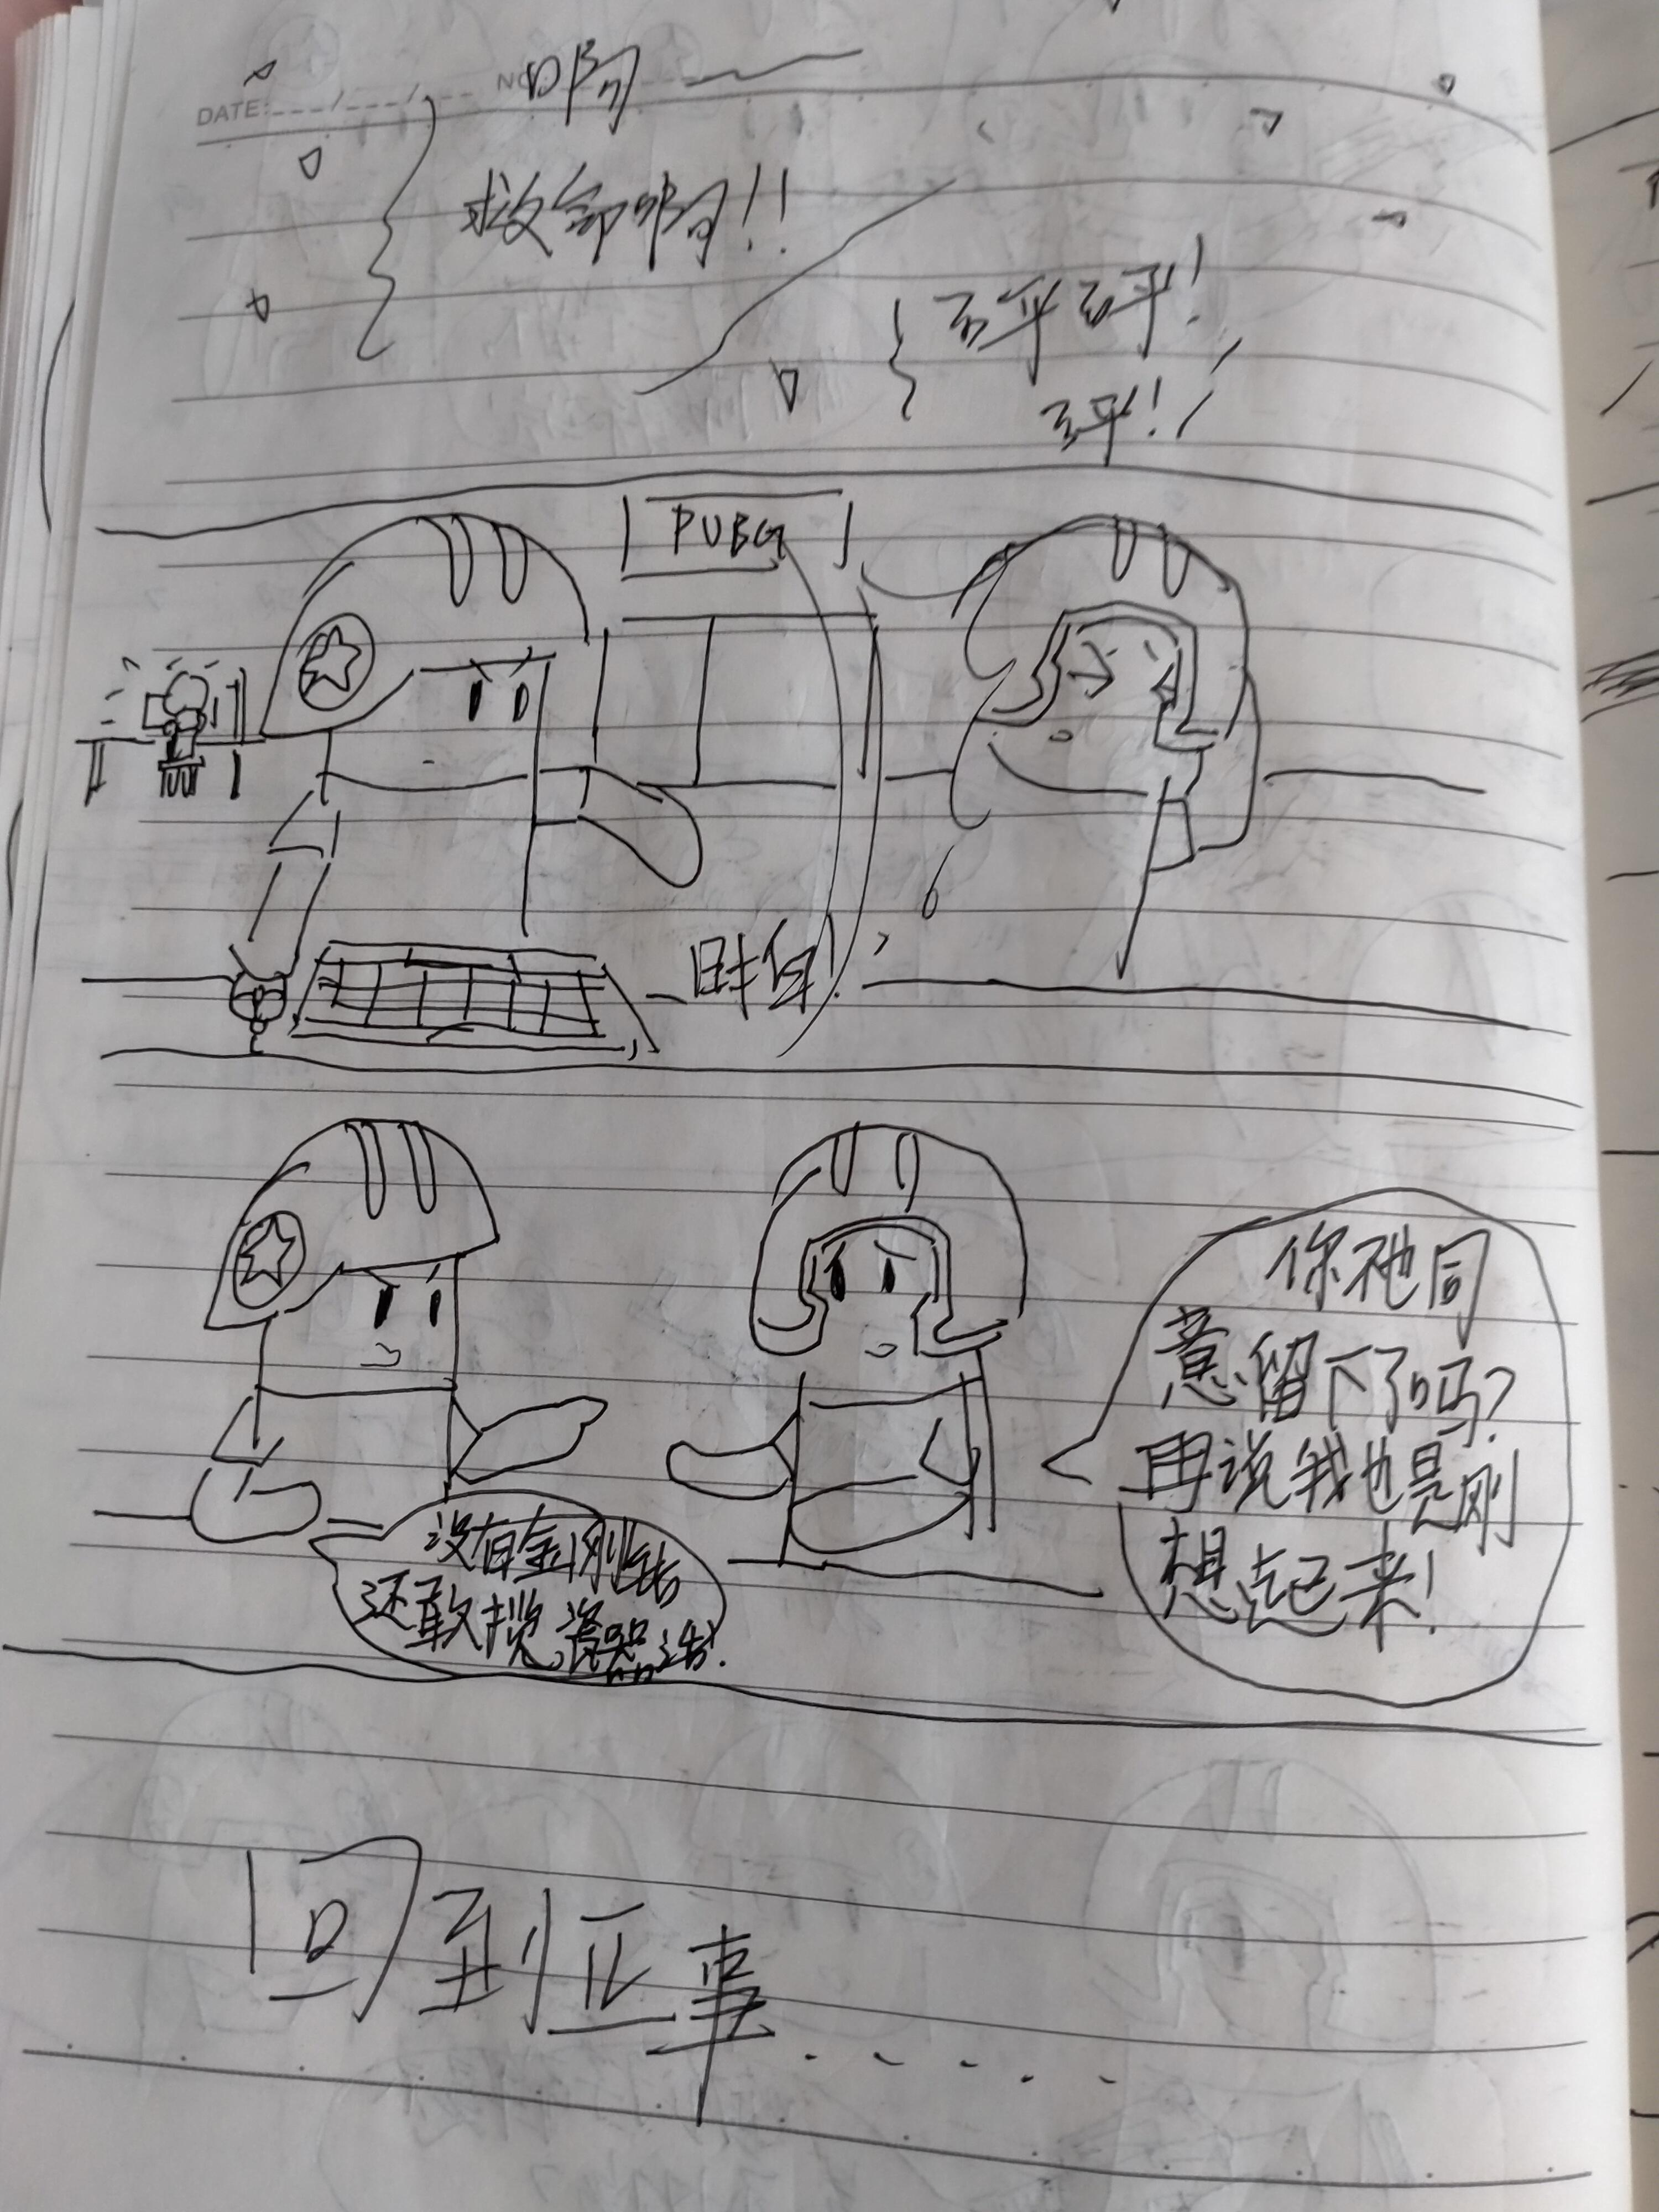 DATE: NO.
啊
救命啊!!
砰砰!
砰!!
PUBG
一时有!
你祂同
意留下了吗?
再说我也是刚
想起来!
没有金刚钻
还敢揽瓷器活.
回到正事.....